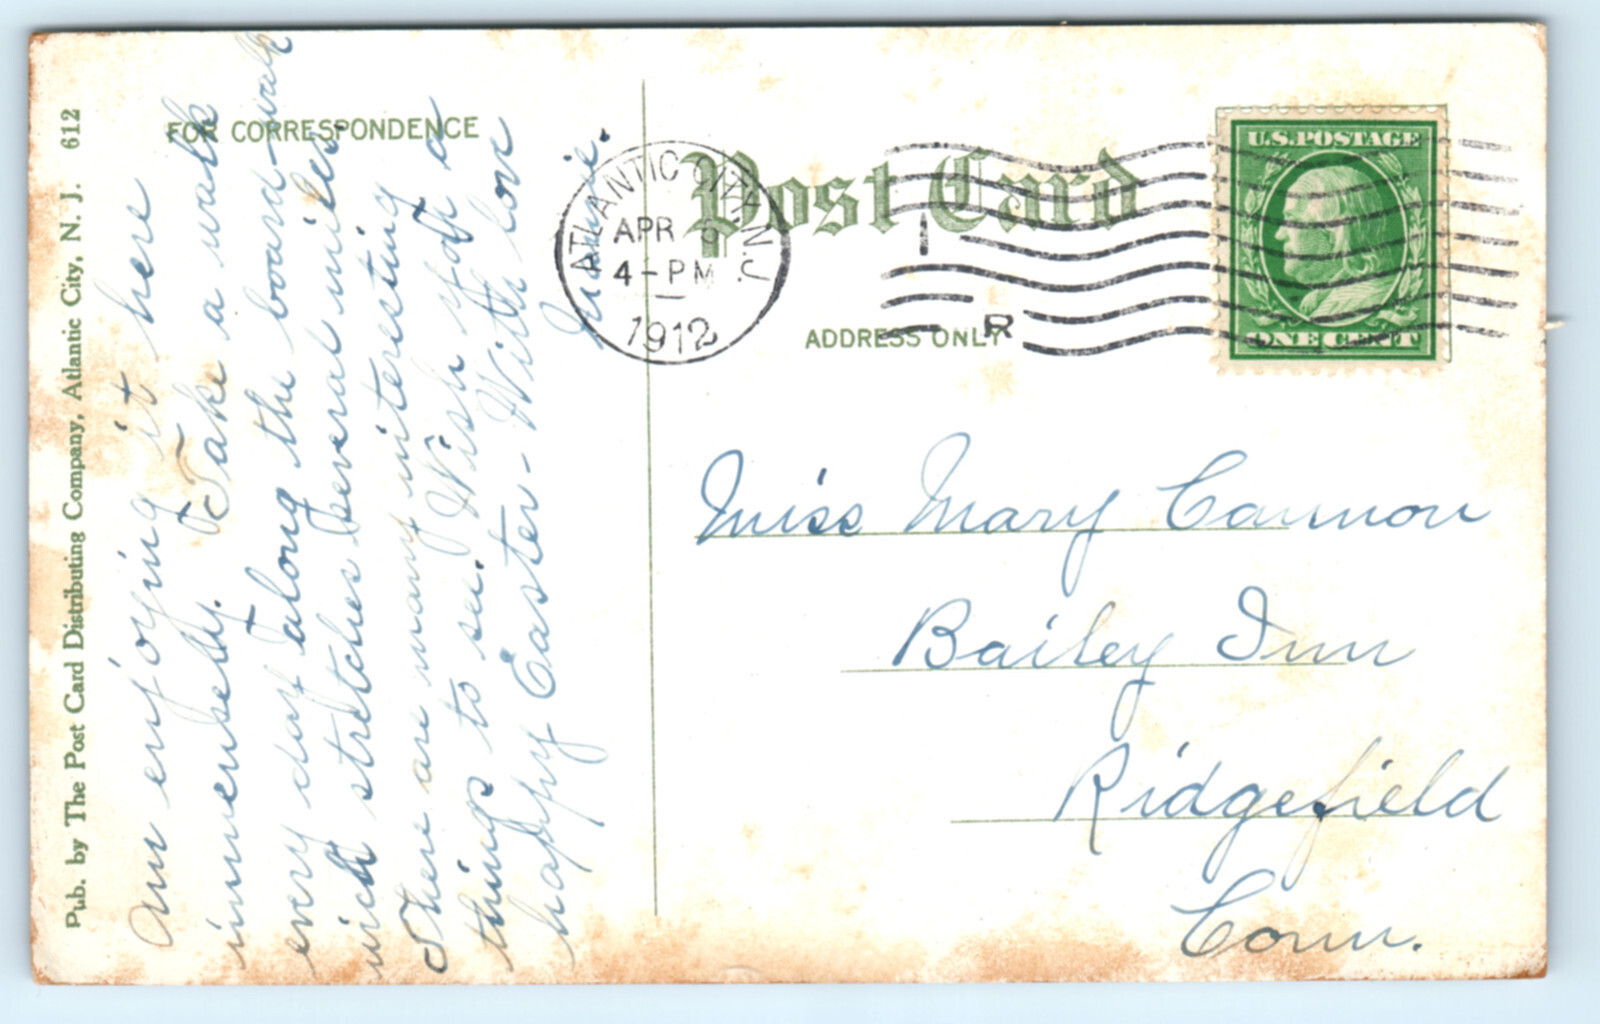 Pub. by The Post Card Distributing Company, Atlantic City, N. J. 612
FOR CORRESPONDENCE
Am enjoying it here
immensely. Take a walk
every day along the board-walk
wich stretches several miles.
There are many interesting
things to see. Wish you a
happy Easter - With love
Post Card
ADDRESS ONLY
ATLANTIC CITY, N.J.
APR
4-PM
1912
R
U.S. POSTAGE
ONE CENT
Miss Mary Cannon
Bailey Inn
Ridgefield
Conn.